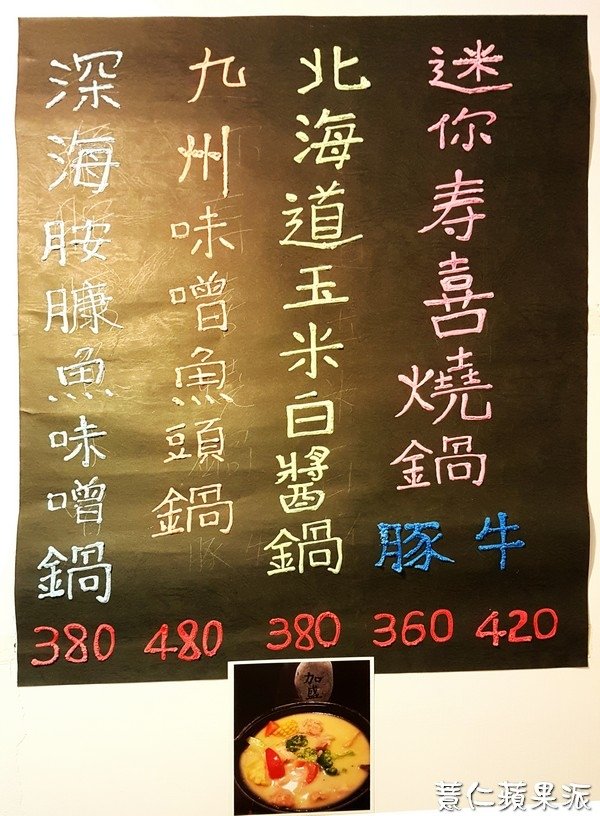 迷你寿喜燒鍋
豚 牛
360 420
北海道玉米白醬鍋
380
九州味噌魚頭鍋
480
深海鮟鱇魚味噌鍋
380
加盛
薏仁蘋果派